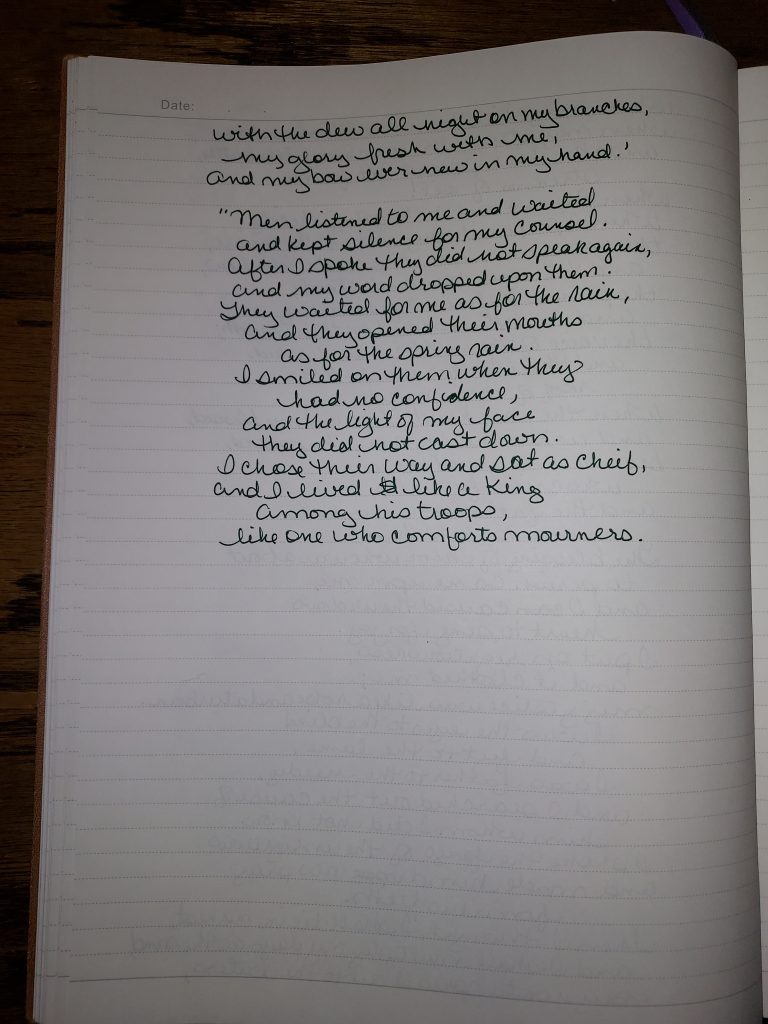 Date:
with the dew all night on my branches,
my glory fresh with me,
and my bow ever new in my hand.'
"Men listened to me and waited
and kept silence for my counsel.
After I spoke they did not speak again,
and my word dropped upon them.
They waited for me as for the rain,
and they opened their mouths
as for the spring rain.
I smiled on them when they
had no confidence,
and the light of my face
they did not cast down.
I chose their way and sat as cheif,
and I lived like a King
among his troops,
like one who comforts mourners.